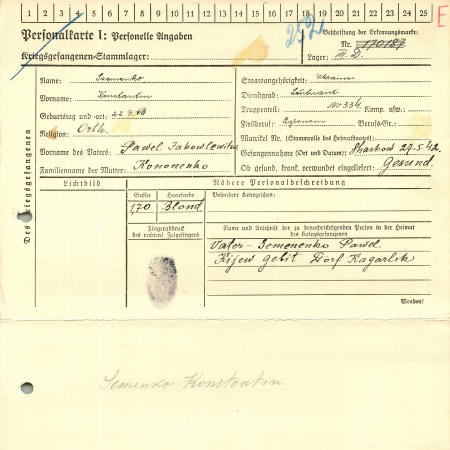 1 2 3 4 5 6 7 8 9 10 11 12 13 14 15 16 17 18 19 20 21 22 23 24 25
E
252
Personalkarte I: Personelle Angaben
Beschriftung der Erkennungsmarke:
Nr. 170187
Kriegsgefangenen-Stammlager:
Lager: III D.
Des Kriegsgefangenen
Name: Semenko
Vorname: Konstantin
Geburtstag und -ort: 22.9.18
Religion: Orth.
Vorname des Vaters: Pawel Jakowlewitsch
Familienname der Mutter: Kononenko
Staatsangehörigkeit: Ukrainer
Dienstgrad: Leutnant
Truppenteil: Nr 334. Komp. usw.:
Zivilberuf: Berufs-Gr.:
Matrikel Nr. (Stammrolle des Heimatstaates):
Gefangennahme (Ort und Datum): Charkow 27.5.42.
Ob gefund, krank, verwundet eingeliefert: Gesund.
Lichtbild
Nähere Personalbeschreibung
Größe
Haarfarbe
Besondere Kennzeichen:
1,70
Blond
Fingerabdruck
des rechten! Zeigefingers
Name und Anschrift der zu benachrichtigenden Person in der Heimat
des Kriegsgefangenen
Vater - Semenenko Pawel
Kijew gebit Dorf Kagarlik
Wenden!
Semenko Konstantin.